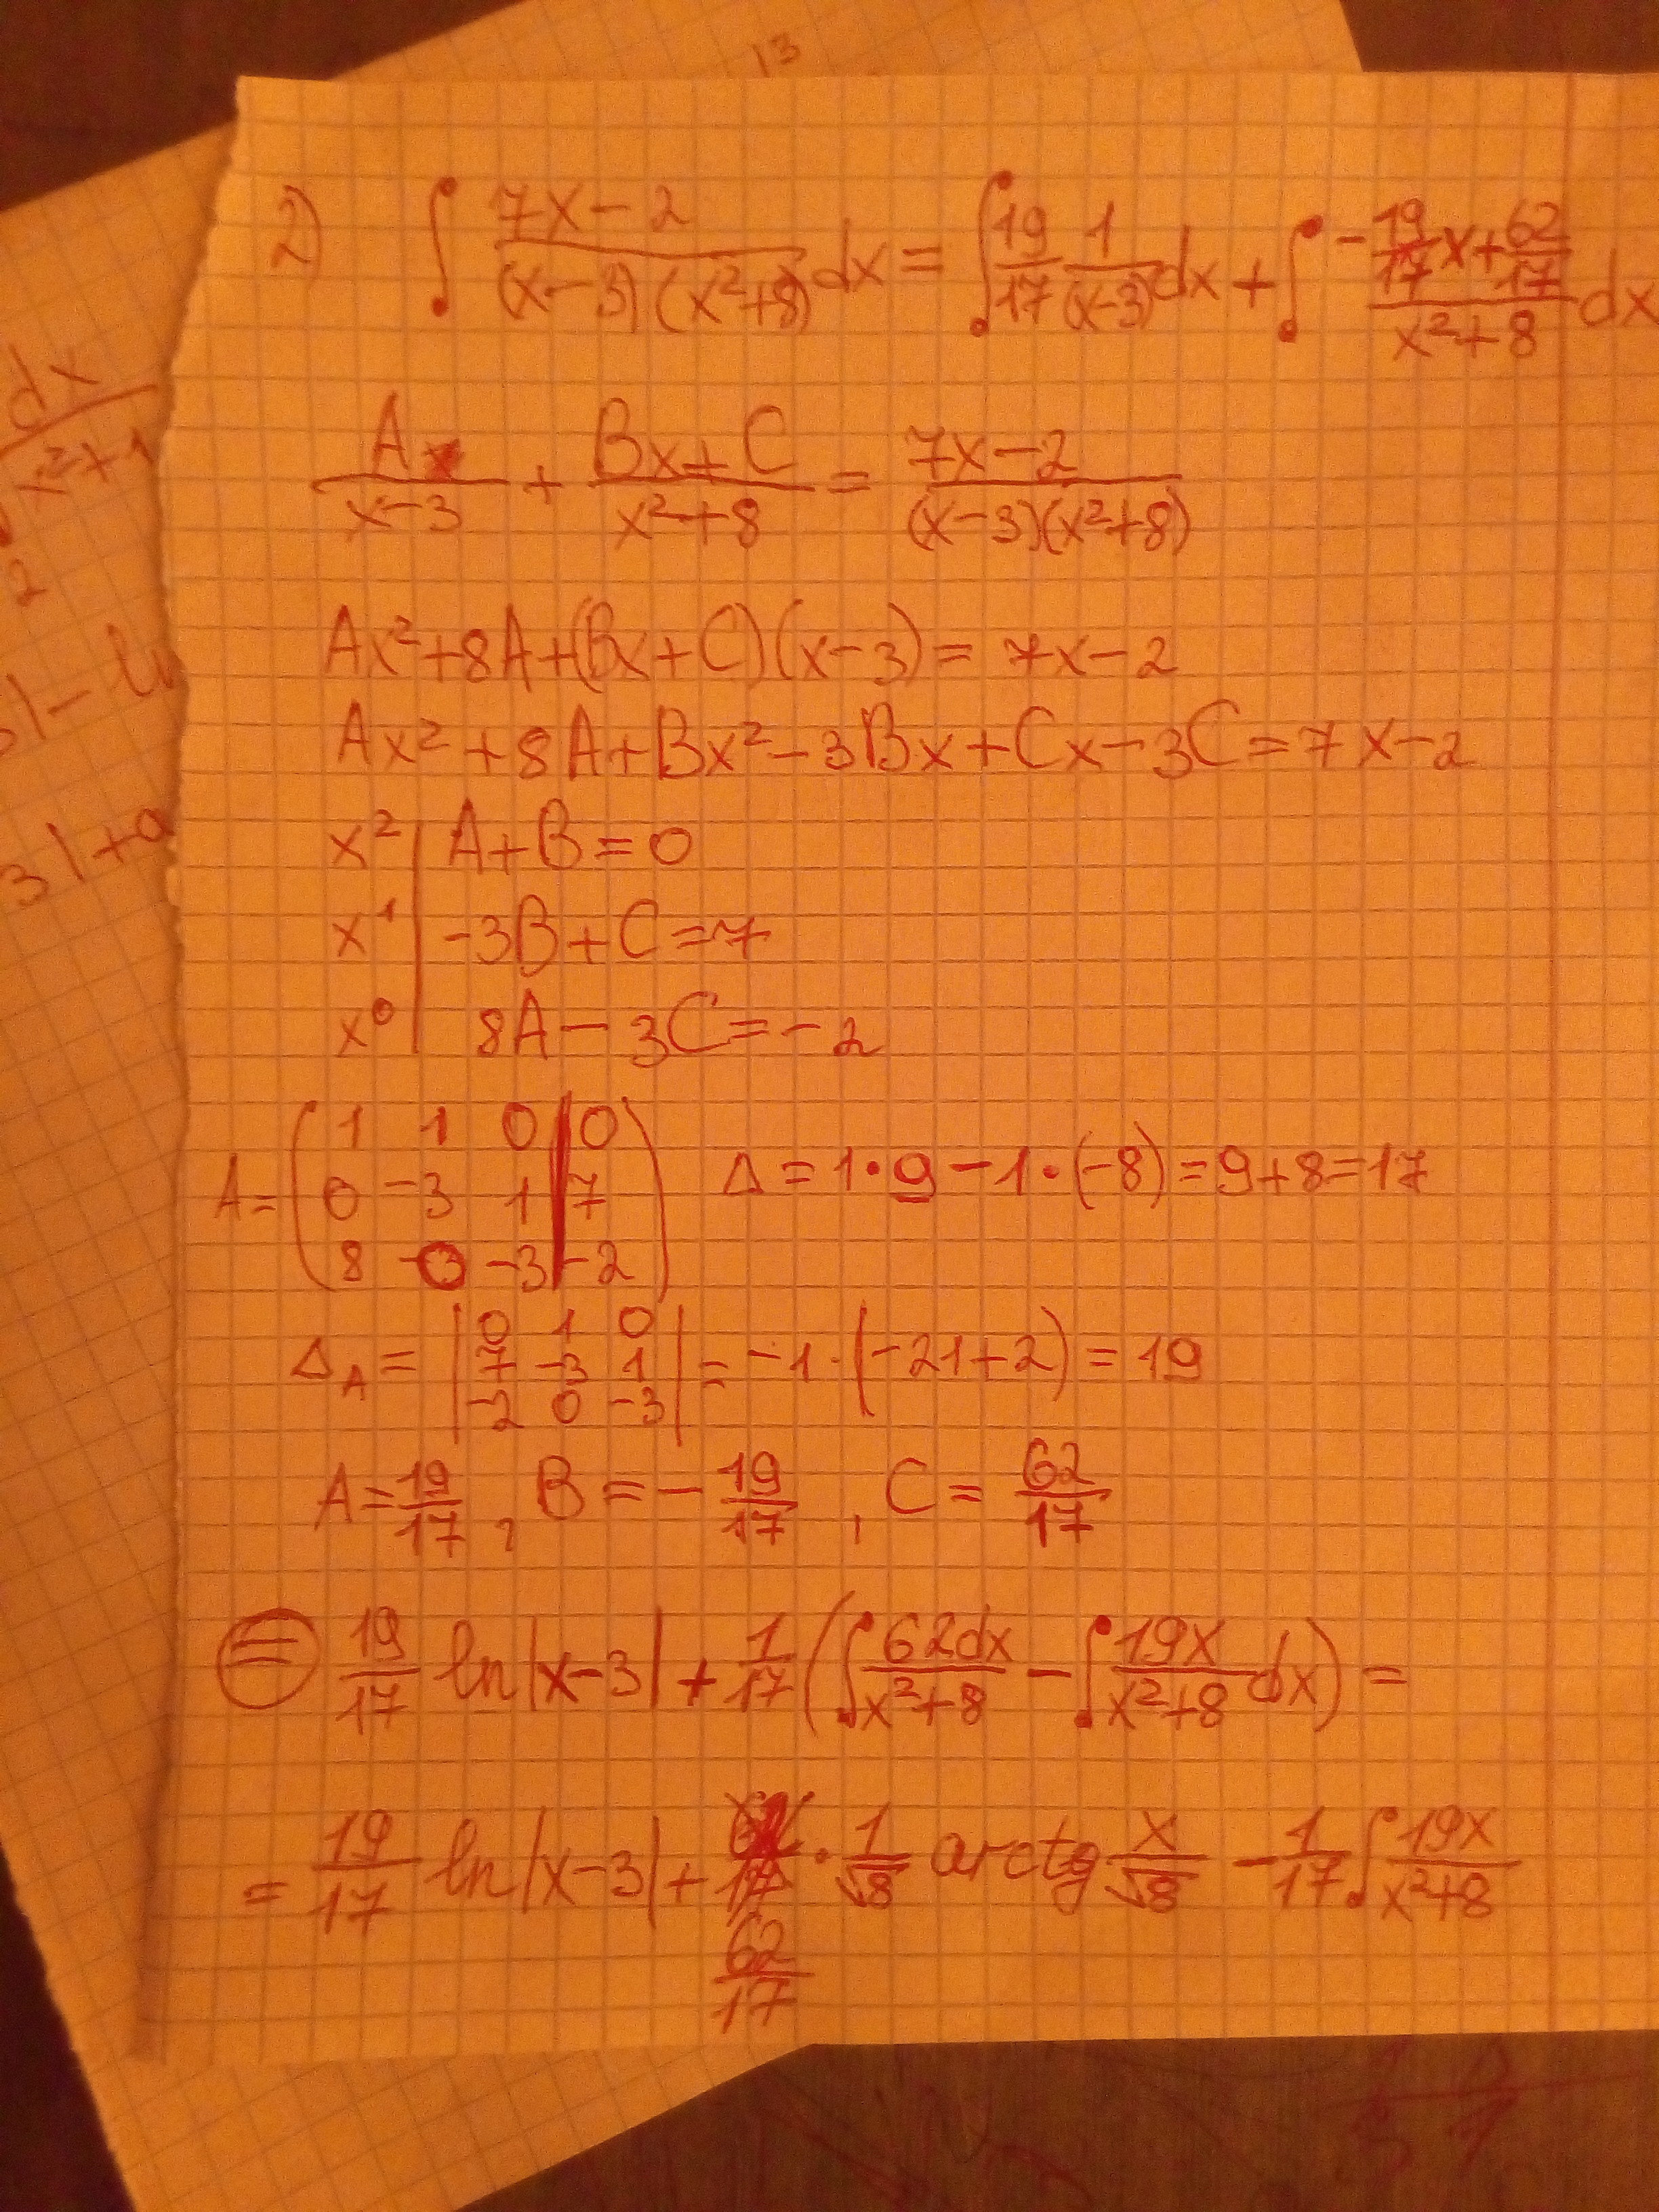 13
2) ∫ (7x-2)/((x-3)(x²+8)) dx = ∫ 19/17 1/(x-3) dx + ∫ (-19/17 x + 62/17)/(x²+8) dx
A/(x-3) + (Bx+C)/(x²+8) = (7x-2)/((x-3)(x²+8))
Ax²+8A+(Bx+C)(x-3) = 7x-2
Ax²+8A+Bx²-3Bx+Cx-3C=7x-2
x² | A+B=0
x¹ | -3B+C=7
x⁰ | 8A-3C=-2
A = ( 1 1 0 | 0
0 -3 1 | 7
8 0 -3 | -2 )
Δ = 1·9-1·(-8)=9+8=17
Δ_A = | 0 1 0
7 -3 1
-2 0 -3 | = -1·(-21+2) = 19
A=19/17, B=-19/17, C=62/17
= 19/17 ln|x-3| + 1/17 (∫ 62dx/(x²+8) - ∫ 19x/(x²+8) dx) =
= 19/17 ln|x-3| + 62/17 · 1/√8 arctg x/√8 - 1/17 ∫ 19x/(x²+8)
dx
x²+1
2
3|+a